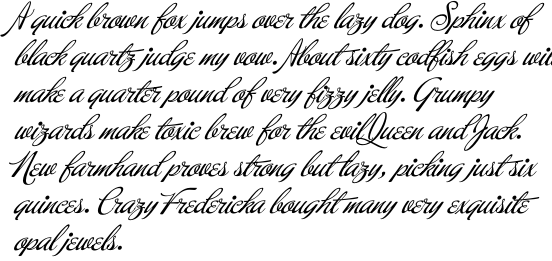 A quick brown fox jumps over the lazy dog. Sphinx of
black quartz judge my vow. About sixty codfish eggs will
make a quarter pound of very fizzy jelly. Grumpy
wizards make toxic brew for the evil Queen and Jack.
New farmhand proves strong but lazy, picking just six
quinces. Crazy Fredericka bought many very exquisite
opal jewels.